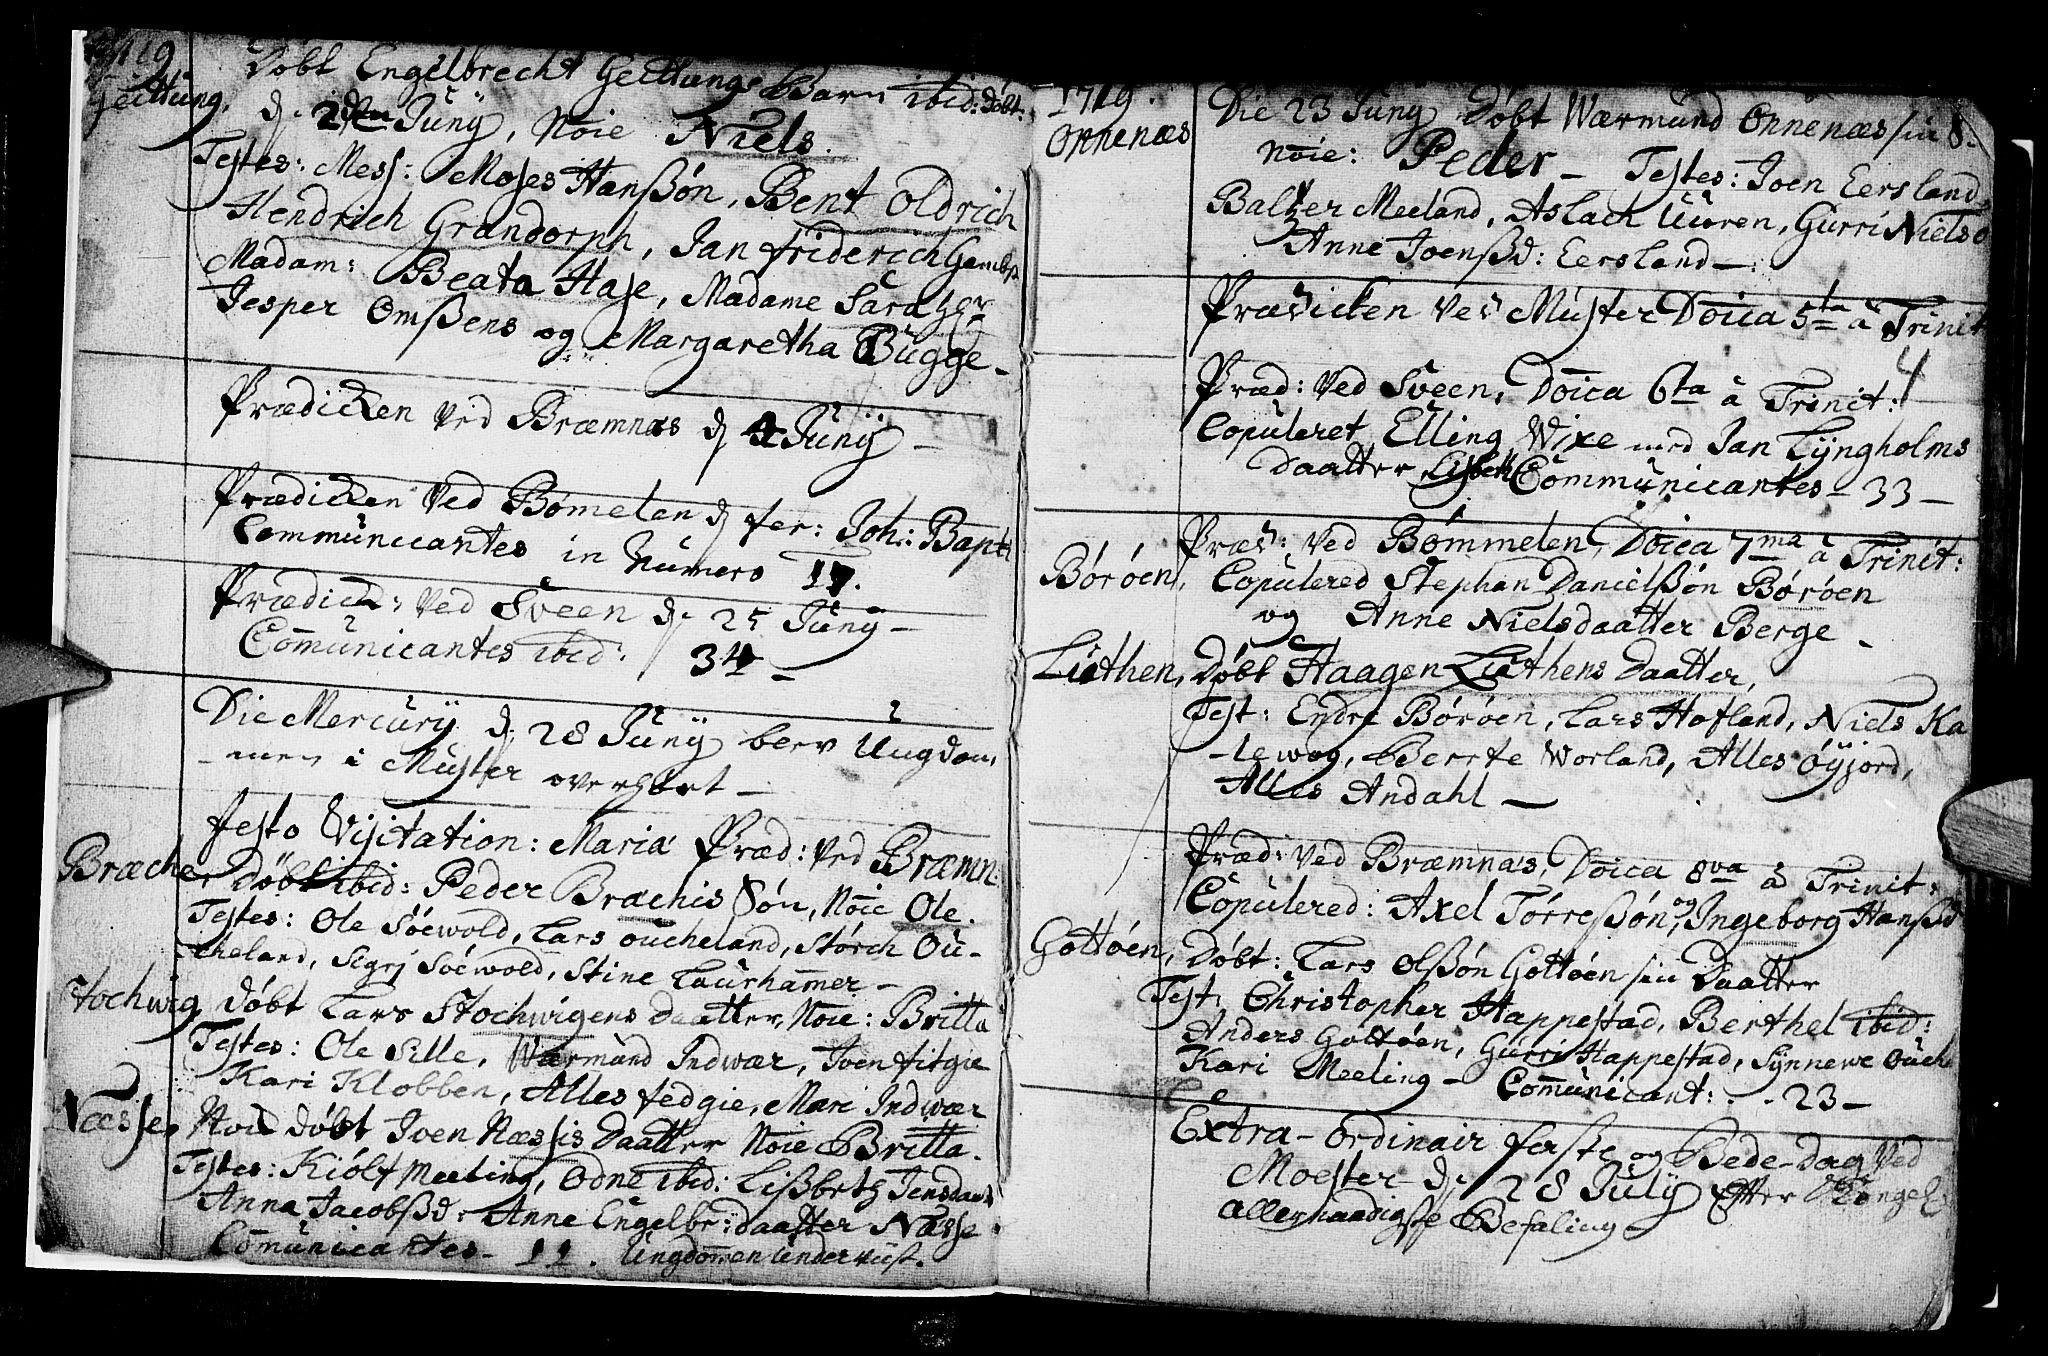 1719
Geittung,
Döbt Engelbrecht Geittungs Barn ibid: döbt.
d. 2den Junÿ, Noie Niels.
Testes: Mess: Moses Hanßön, Bent Oldrich
Hendrich Grandorph, Jan friderich
Madam: Beata Hase, Madame Sara
Jesper Omßens og Margaretha Bugge.
Prædicken ved Bræmnæs d. 4 Junÿ
Prædicken ved Bømelen d. fer: Joh: Bapt:
Communicantes in Numero 17.
Prædick: ved Sveen d. 25 Junÿ
Com̄unicantes ibid: 34
Die Mercurÿ d. 28 Junÿ blev Ungdom,
men i Muster overhört
festo Visitation: Mariæ Præd: ved Bræmn:
Bræche, Döbt ibid: Peder Bræchis Sön, Noie Ole.
Testes: Ole Söewold, Lars oucheland, Störch Ou-
cheland, Segrj Söewold, Stine Laurham̄er
Stochwig, döbt Lars Stochwigens daatter, Noie: Britta
Testes: Ole Sille, Wærmund Indwær, Joen fitgie
Kari Klobben, Alles fedgie, Mari Indwær
Næsse, Noch döbt Joen Næssis Daatter Noie Britta.
Testes: Kiölf Meeling, Odne ibid: Lißbeth Jensdaat:
Anna Jacobßd: Anne Engelbr: daatter Næsse
Com̄unicantes 11. Ungdom̄en Underviist.
1719.
Onnenæs
Die 23 Junÿ Döbt Wærmund Onnenæs sin S.
Noie: Peder Testes: Joen Eersland,
Baltzer Meeland, Aslach Uuren, Gurri Nielsd
Anne Joensßd: Eersland
Prædicken ved Muster Doica 5ta à Trinit
4
Præd: ved Sveen, Doica 6ta à Trinit:
Copuleret Elling Wixe med Jan Lÿngholms
daatter Lisbeth Communicantes 33
Præd: ved Bømmelen, Doica 7ma à Trinit:
Börøen, Copulered Stephan Danielßön Börøen
og Anne Nielsdaatter Berge
Liithen, Döbt Haagen Liithens daatter,
Test: Endre Börøen, Lars Hofland, Niels Ka
lewog, Berrte Worland, Alles Öÿjord,
Alles Andahl
Præd: ved Bræmnæs, Doica 8va à Trinit:
Copulered: Axel Törreßön, og Ingeborg Hansßd
Gottöen, Döbt: Lars Olßön Gottöen sin Daatter
Test: Christopher Happestad, Berthel ibid:
Anders Gottöen, Gurri Happestad, Sÿnnewe Ouche
Kari Meeling Com̄unicant: 23
Extra-ordinair ferste og Bede-dag ved
Moester d. 28 Julÿ Efter Konge
allernaadigste Befaling